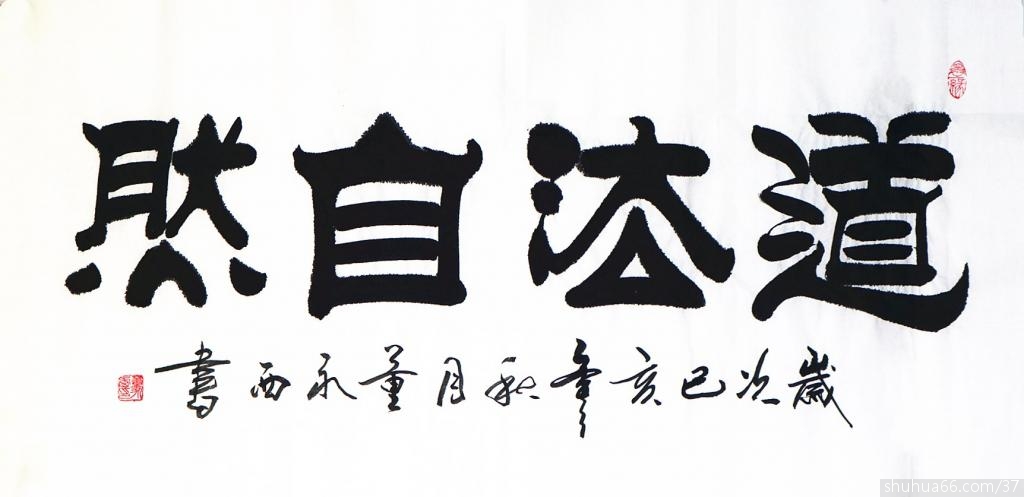 道法自然
歲次己亥年秋月董永西書
shuhua66.com/37